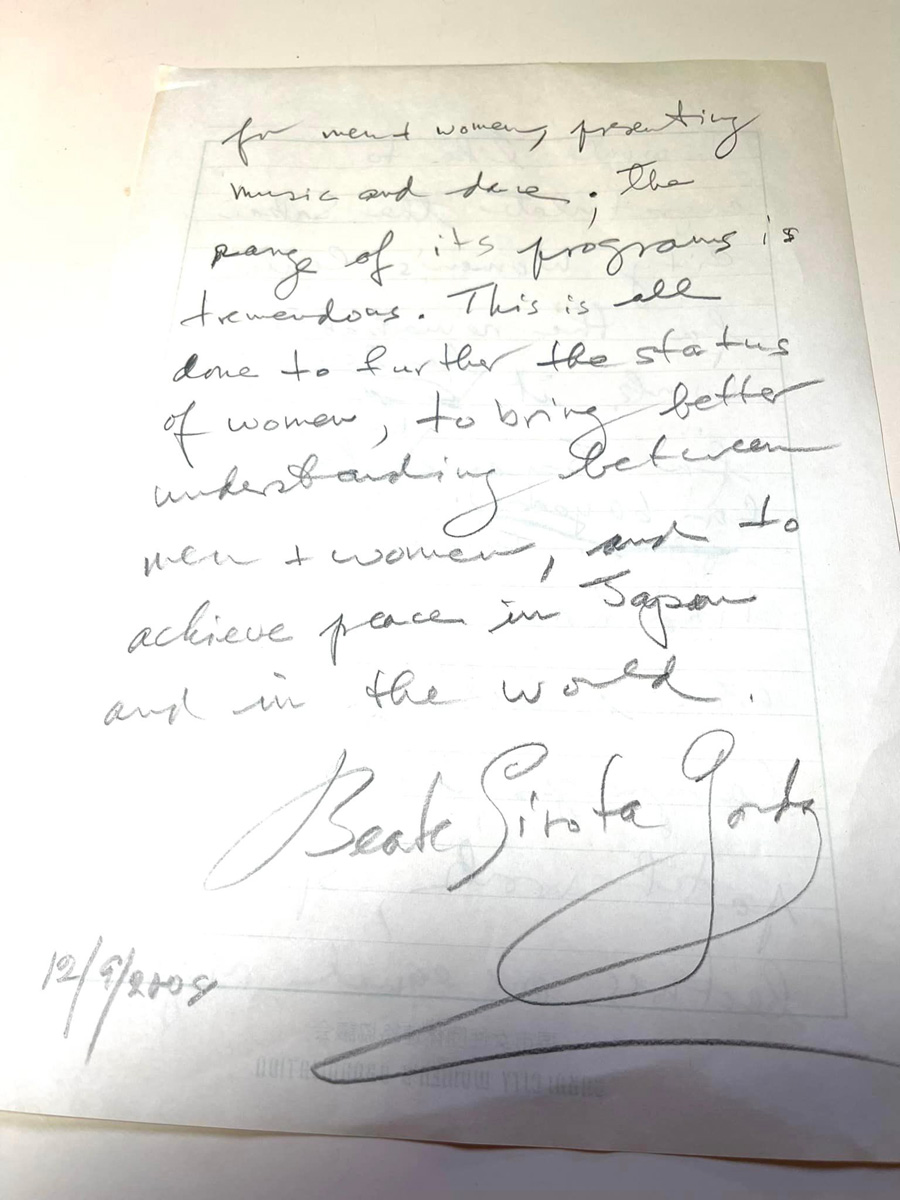 for men + women, presenting
music and dance; the
range of its programs is
tremendous. This is all
done to further the status
of women, to bring better
understanding between
men + women, and to
achieve peace in Japan
and in the world.
Beate Sirota Gordon
12/9/2005